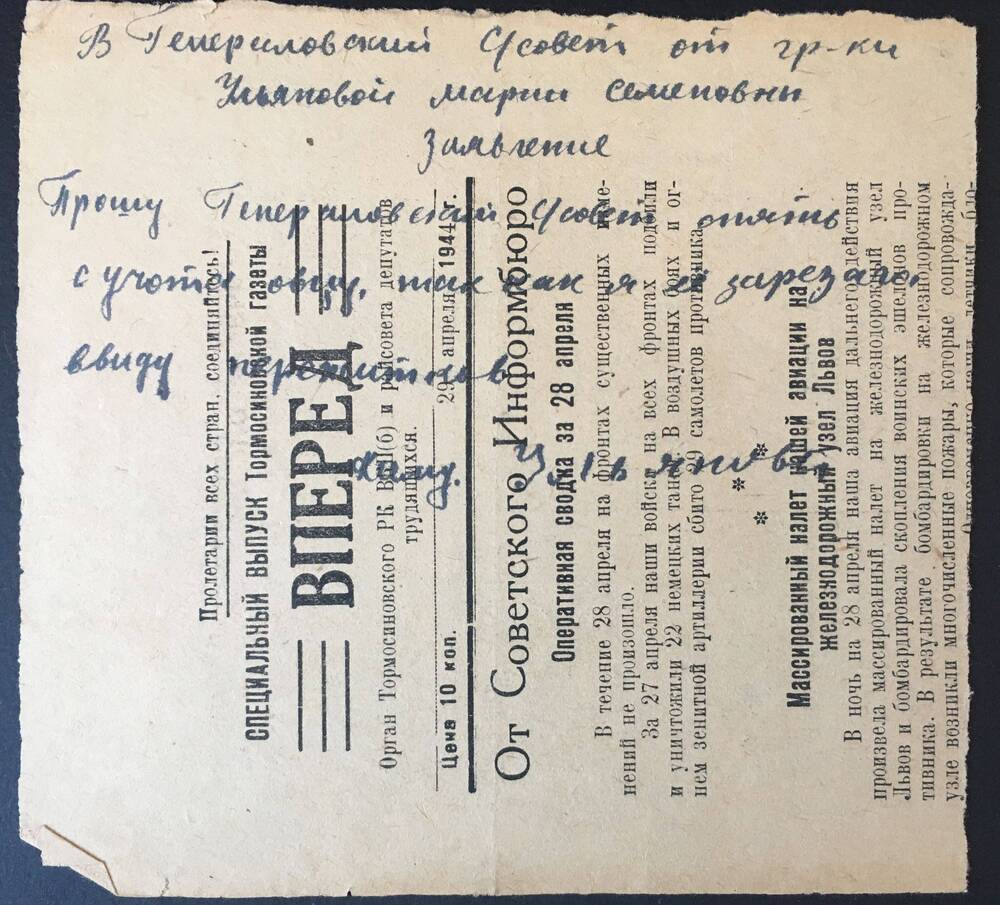 В Генераловский С/совет от гр-ки
Ульяновой марии семеновны
Заявление
Прошу Генераловский С/совет снять
с учота овцу, так как я ее зарезала
ввиду
Ульянова
Пролетарии всех стран, соединяйтесь!
СПЕЦИАЛЬНЫЙ ВЫПУСК Тормосиновской газеты
ВПЕРЕД
Орган Тормосиновского РК ВКП(б) и райсовета депутатов
трудящихся.
Цена 10 коп. 29 апреля 1944 г.
От Советского Информбюро
Оперативная сводка за 28 апреля
В течение 28 апреля на фронтах существенных изме-
нений не произошло.
За 27 апреля наши войска на всех фронтах подбили
и уничтожили 22 немецких танка. В воздушных боях и ог-
нем зенитной артиллерии сбито 19 самолетов противника.
* * *
Массированный налет нашей авиации на
железнодорожный узел Львов
В ночь на 28 апреля наша авиация дальнего действия
произвела массированный налет на железнодорожный узел
Львов и бомбардировала скопления воинских эшелонов про-
тивника. В результате бомбардировки на железнодорожном
узле возникли многочисленные пожары, которые сопровожда-